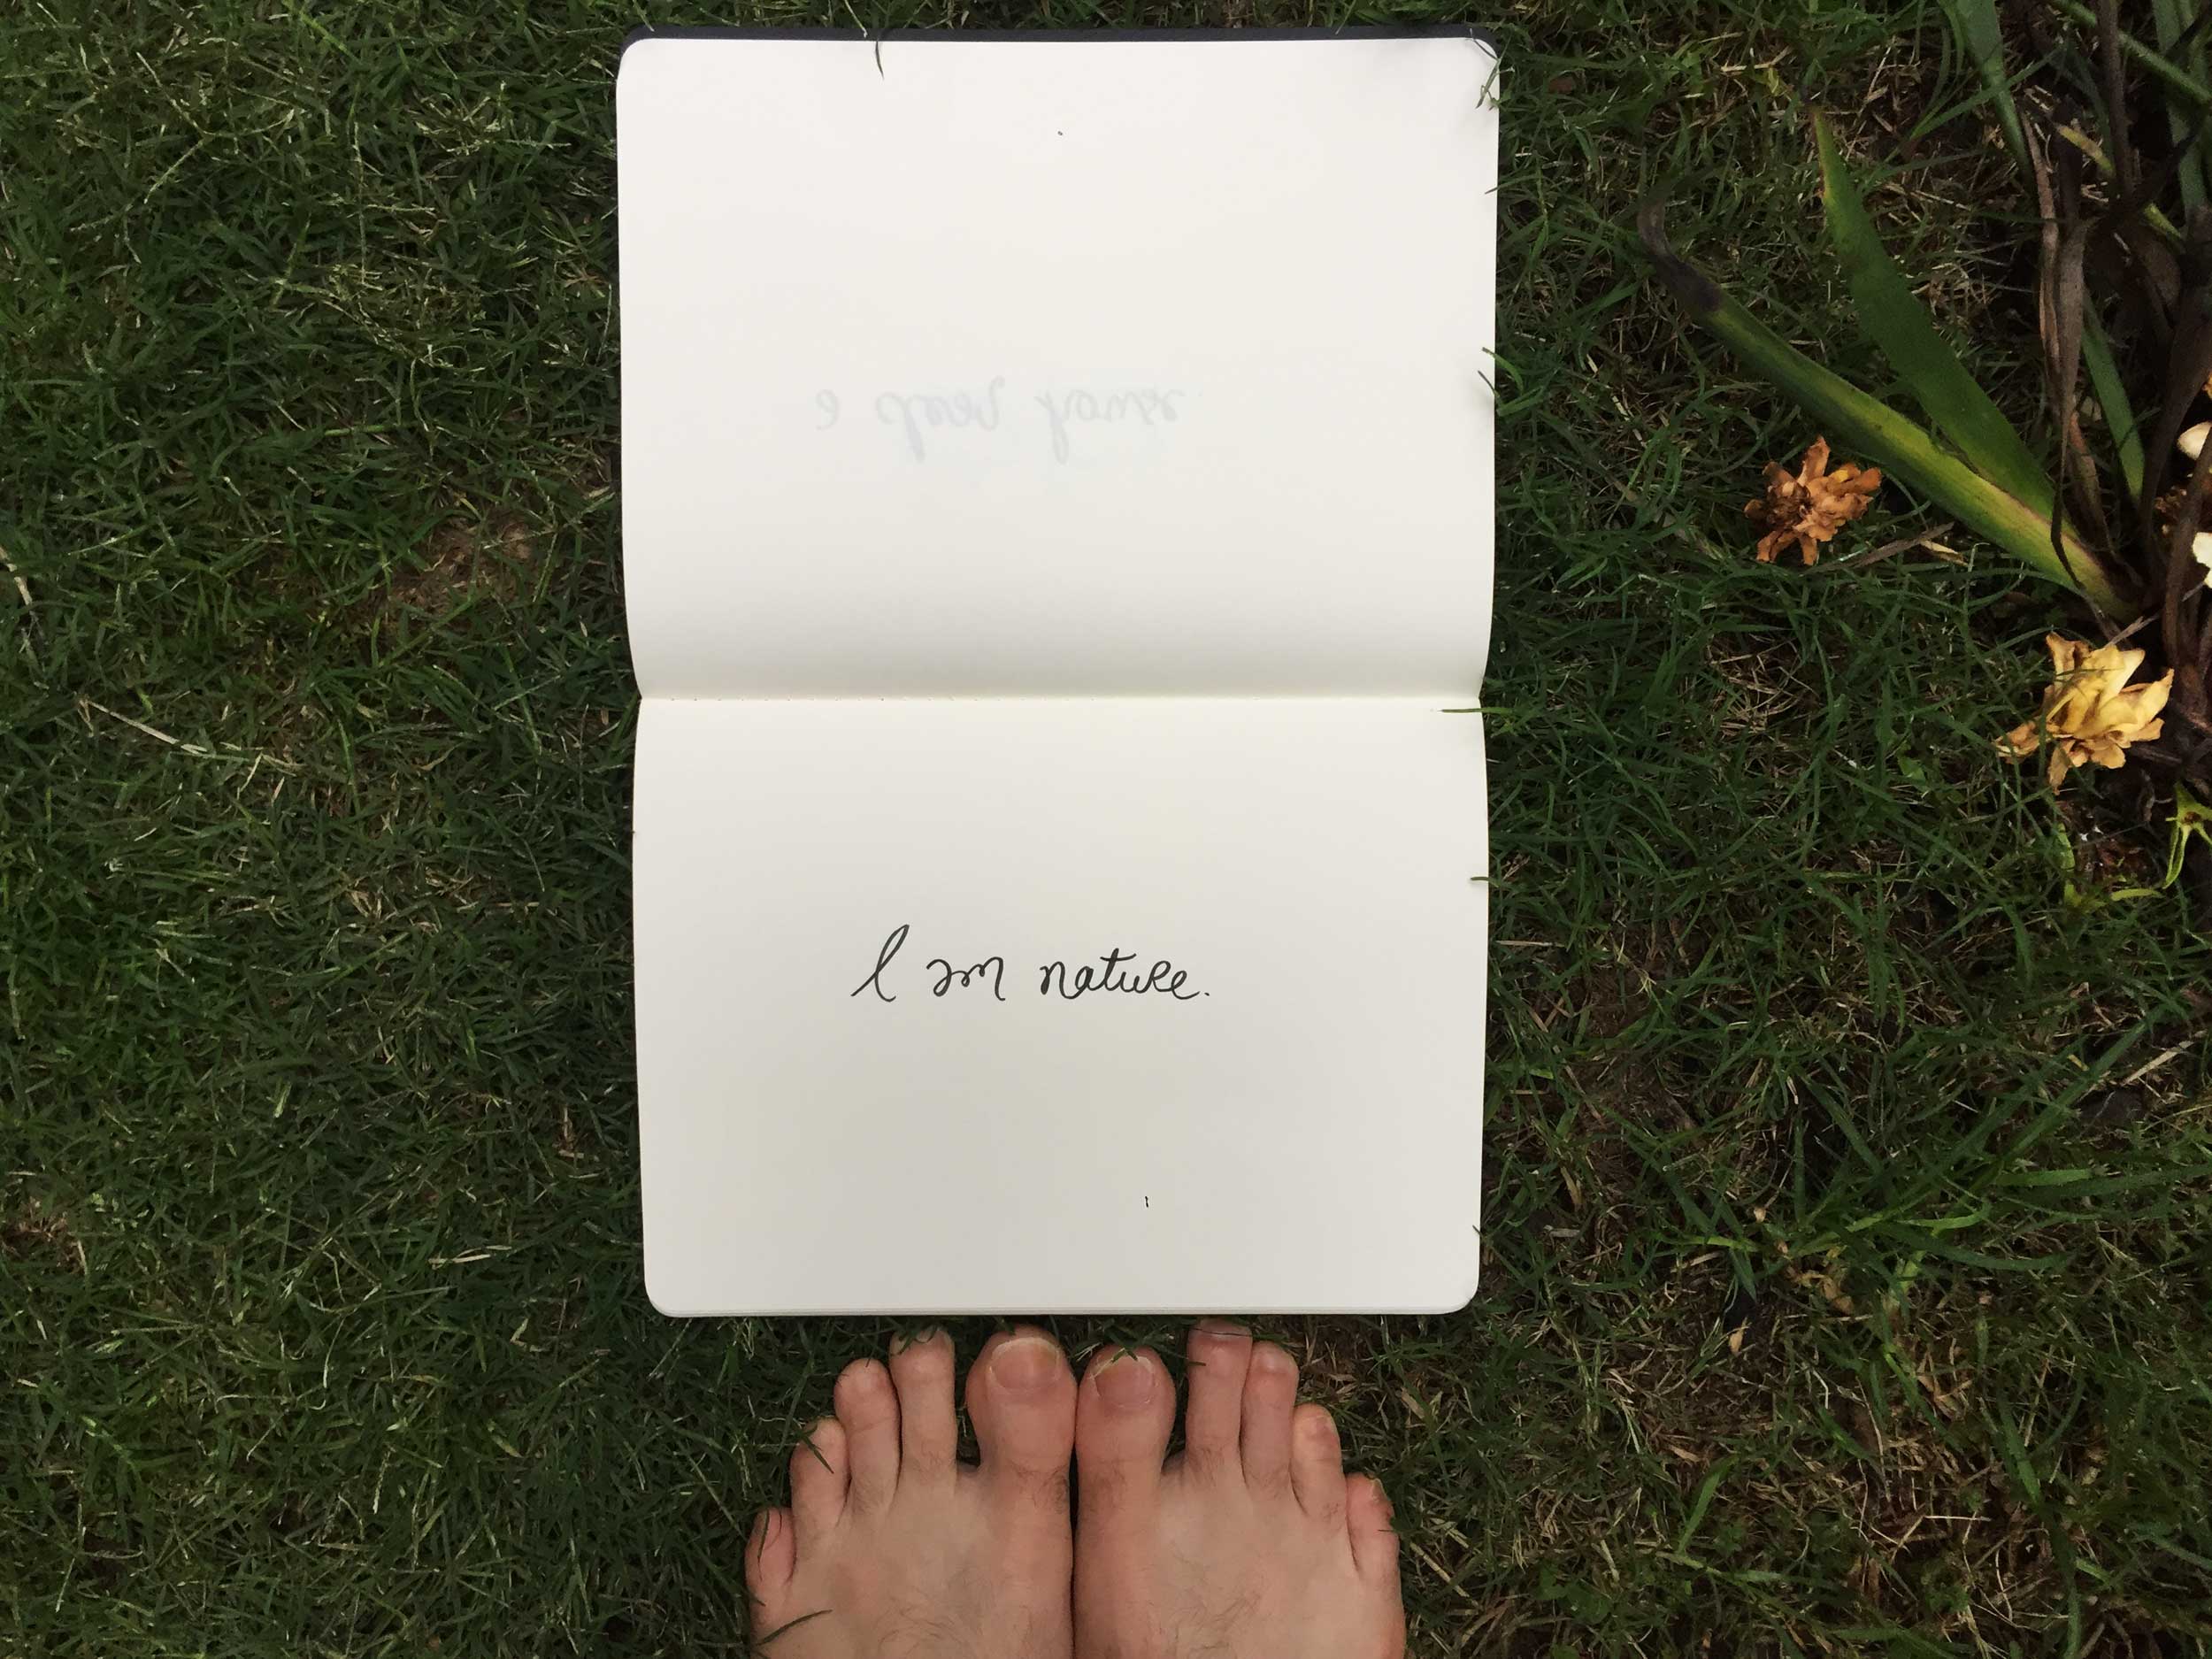 I am nature.